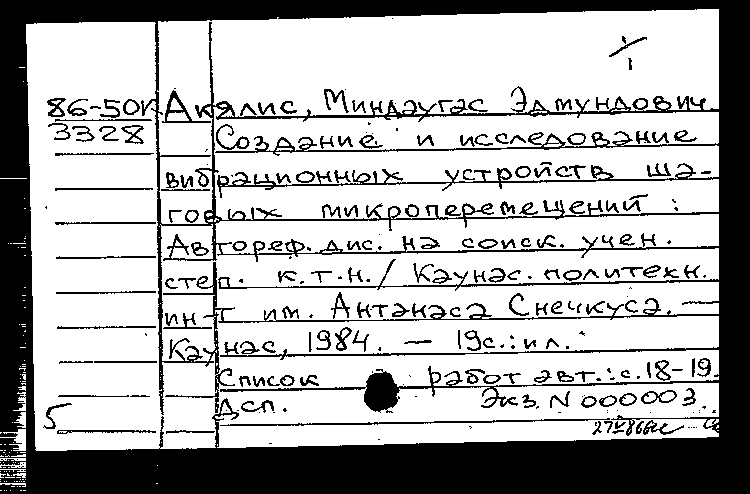 86-50к Акялис, Миндаугас Эдмундович.
3328 Создание и исследование
вибрационных устройств ша-
говых микроперемещений :
Автореф. дис. на соиск. учен.
степ. к.т.н./ Каунас. политехн.
ин-т им. Антанаса Снечкуса. —
Каунас, 1984. — 19с.: ил.
Список работ авт.: с.18-19.
Дсп. Экз. N 000003.
5